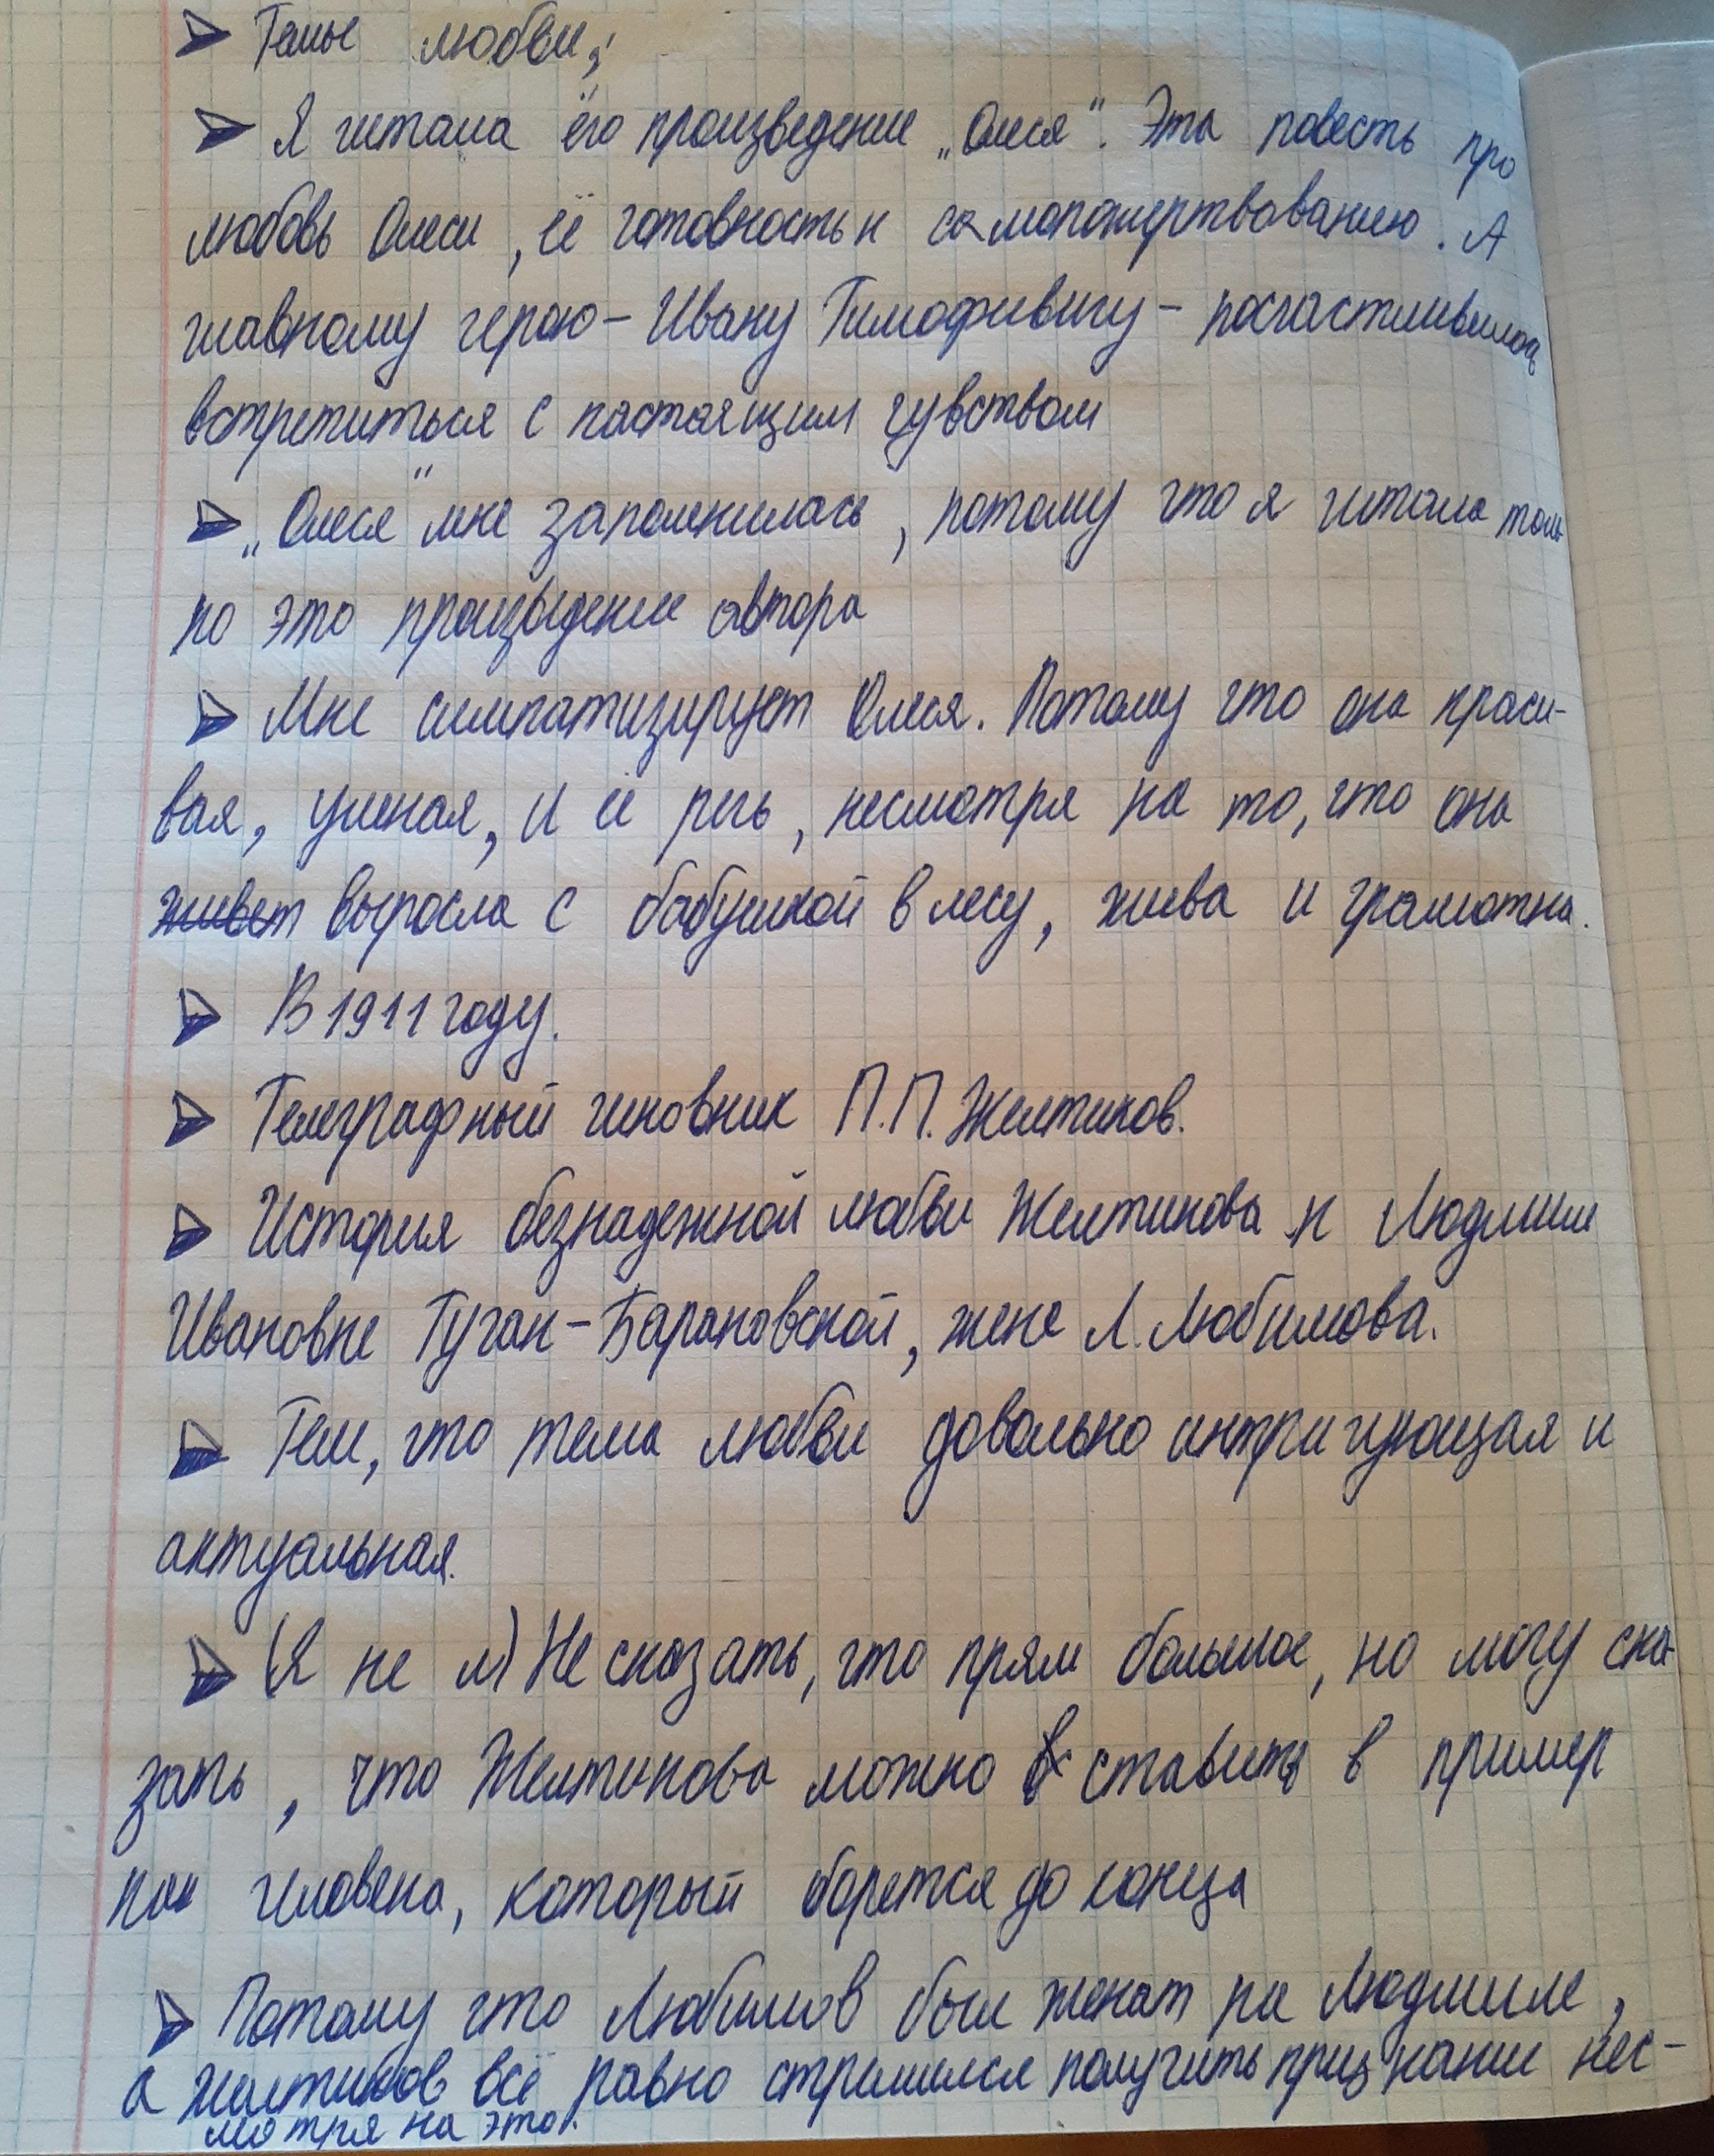 ➢ Теме любви;
➢ Я читала его произведение „Олеся". Эта повесть про
любовь Олеси, её готовность к самопожертвованию. А
главному герою – Ивану Тимофивичу – посчастливилось
встретиться с настоящим чувством
➢ „Олеся" мне запомнилась, потому что я читала толь-
ко это произведение автора
➢ Мне симпатизирует Олеся. Потому что она краси-
вая, умная, и её речь, несмотря на то, что она
живет выросла с бабушкой в лесу, жива и грамотна.
➢ В 1911 году.
➢ Телеграфный чиновник П.П. Желтиков.
➢ История безнадежной любви Желтикова к Людмиле
Ивановне Туган-Барановской, жене Л. Любимова.
➢ Тем, что тема любви довольно интригующая и
актуальная.
➢ (Я не м) Не сказать, что прям большое, но могу ска-
зать, что Желтикова можно ставить в пример
как человека, который борется до конца
➢ Потому что Любимов был женат на Людмиле,
а Желтиков всё равно стремился получить признание нес-
мотря на это.